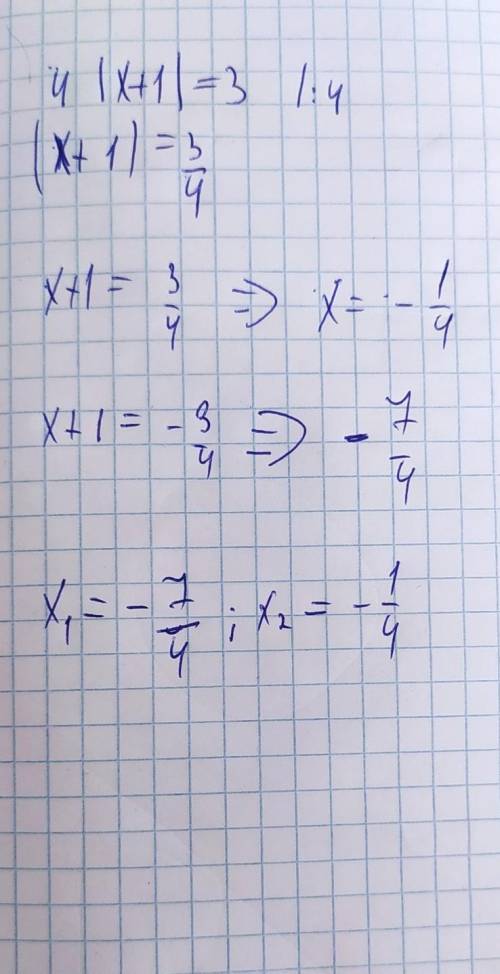 4 |x+1| = 3 /:4
|x+1| = 3/4
x+1 = 3/4 ⇒ x = - 1/4
x+1 = - 3/4 ⇒ - 7/4
x₁ = - 7/4 ; x₂ = - 1/4